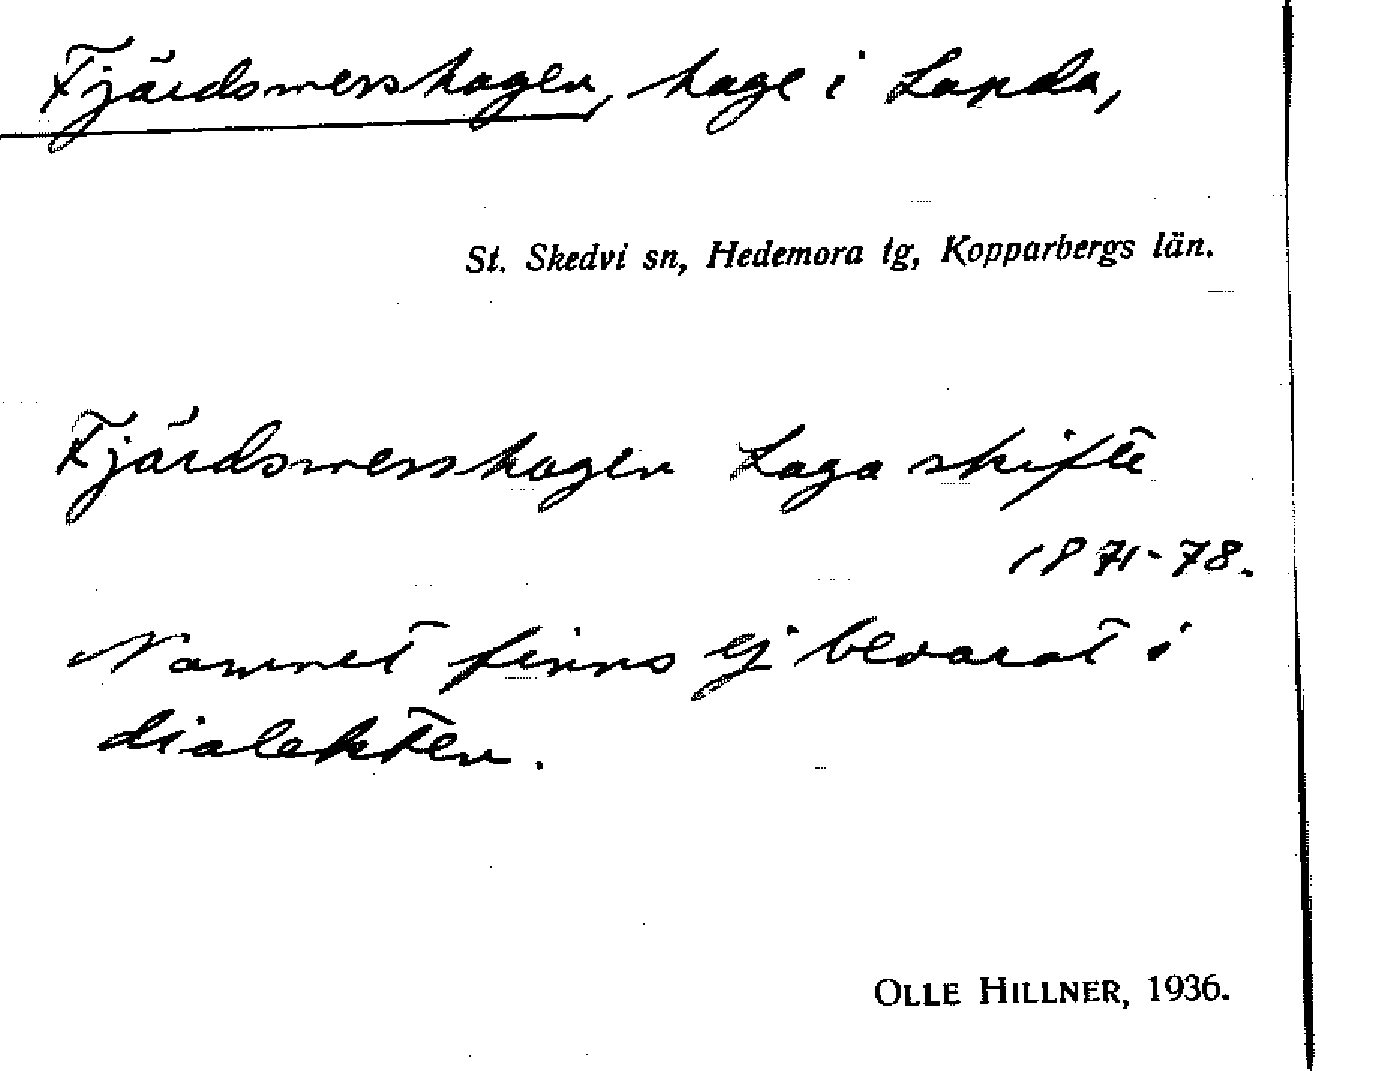 Fjärdsmershagen, hage i Landa,
St. Skedvi sn, Hedemora tg, Kopparbergs län.
Fjärdsmershagen Laga skifte
1871-78.
Namnet finns ej bevarat i
dialekten.
OLLE HILLNER, 1936.